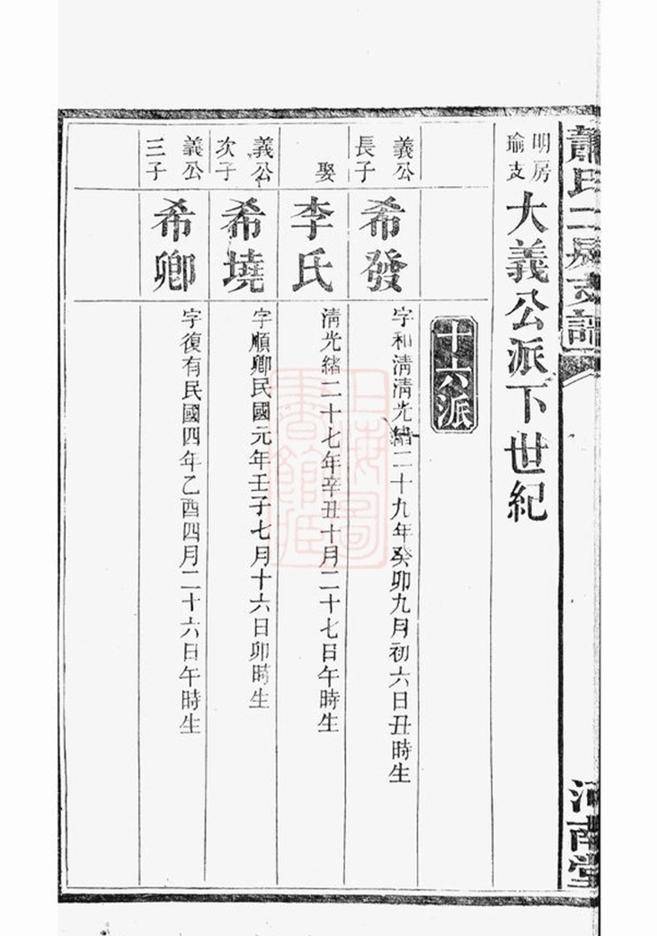 蕭氏二房支譜
河南堂
明房
瑜支
大義公派下世紀
十六派
義公
長子
希發
字和清清光緒二十九年癸卯九月初六日丑時生
娶
李氏
清光緒二十七年辛丑十月二十七日午時生
義公
次子
希墝
字順卿民國元年壬子七月十六日卯時生
義公
三子
希卿
字復有民國四年乙酉四月二十六日午時生
上海圖
書館藏